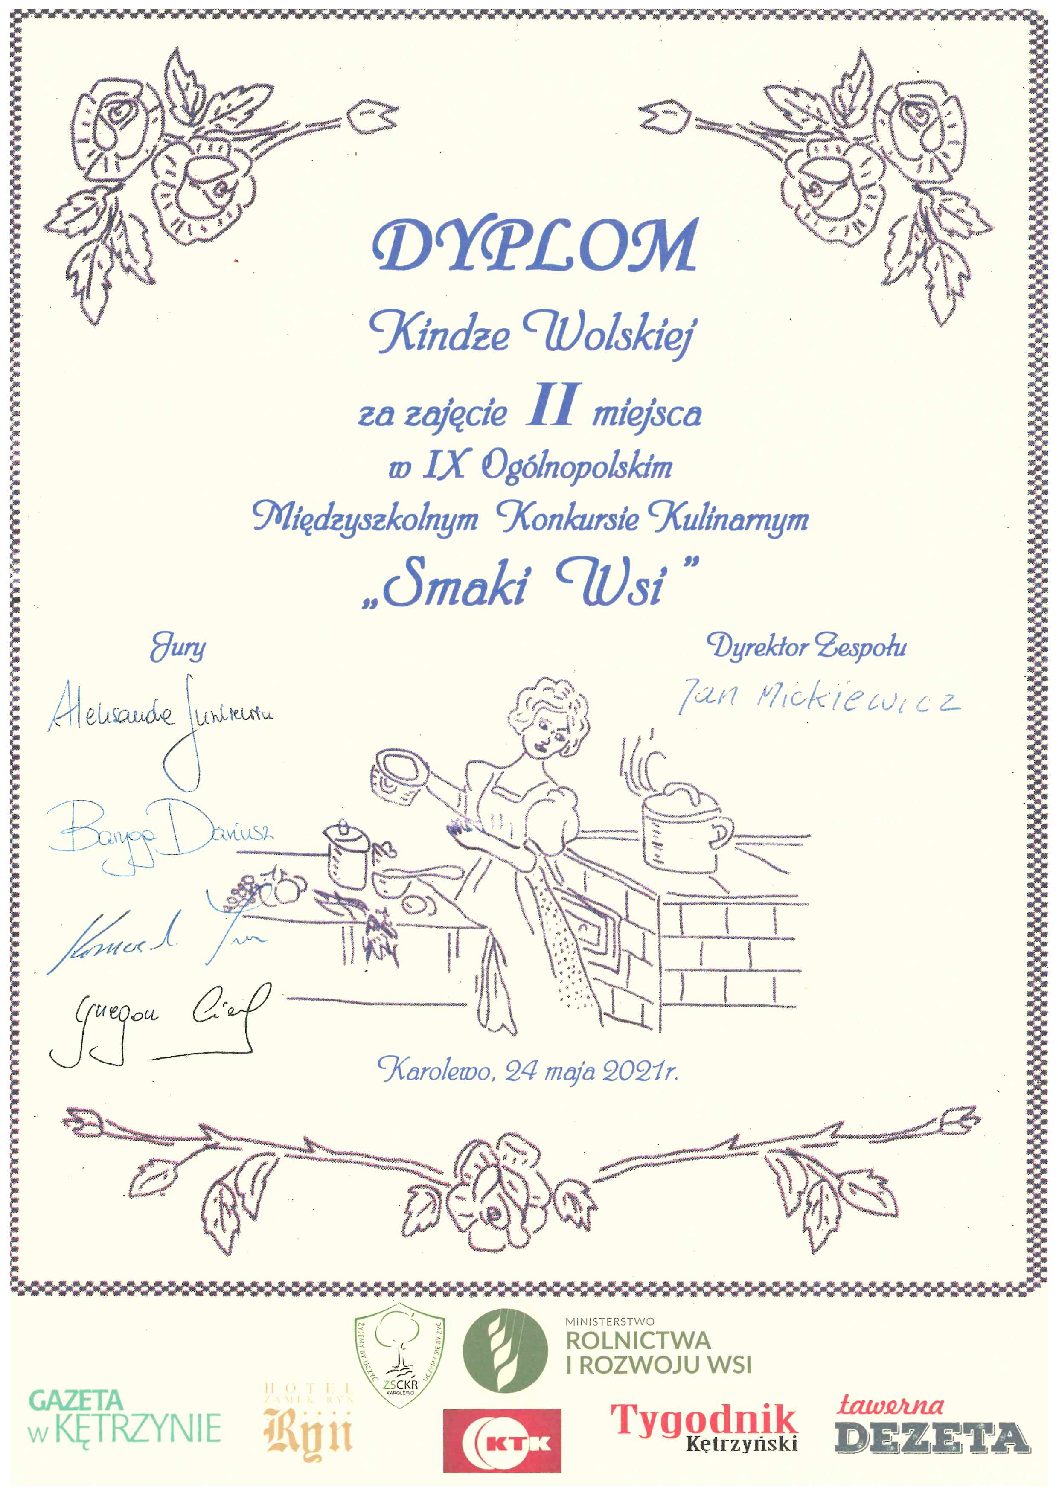 DYPLOM
Kindze Wolskiej
za zajęcie II miejsca
w IX Ogólnopolskim
Międzyszkolnym Konkursie Kulinarnym
„Smaki Wsi”
Jury
Dyrektor Zespołu
Jan Mickiewicz
Aleksandra
Dariusz
Karolewo, 24 maja 2021r.
ZSCKR
KAROLEWO
MINISTERSTWO
ROLNICTWA
I ROZWOJU WSI
GAZETA
w KĘTRZYNIE
HOTEL
ZAMEK RYN
Ryn
KTK
Tygodnik
Kętrzyński
tawerna
DEZETA